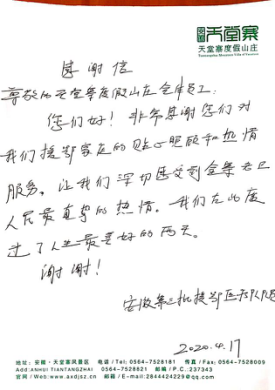 天堂寨
天堂寨度假山庄
感谢信
尊敬的天堂寨度假山庄全体员工：
您们好！非常感谢您们对
我们援鄂家庭的贴心照顾和热情
服务。让我们深切感受到金寨老区
人民最真挚的热情。我们在此度
过了人生最美好的两天。
谢谢！
安徽第三批援鄂医疗队队员
2020.4.17
地址：安徽·天堂寨风景区 电话/Tel: 0564-7528181 传真/Fax: 0564-7528089
Add:ANHUI TIANTANGZHAI 0564-7528821 邮编/P.C.237343
官网/Web:www.axdjsz.cn 邮箱/E-mail:2844424229@qq.com